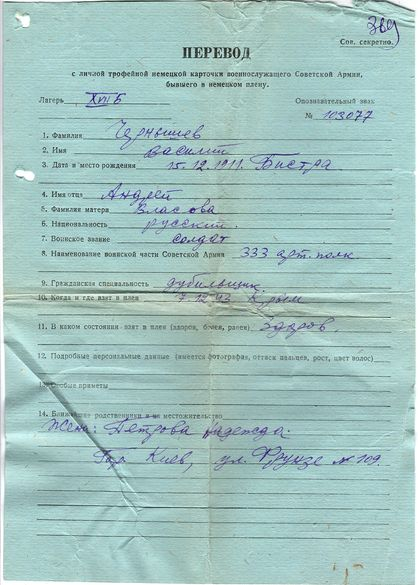 369
Сов. секретно.
ПЕРЕВОД
с личной трофейной немецкой карточки военнослужащего Советской Армии,
бывшего в немецком плену.
Лагерь XVII Б
Опознавательный знак
№ 103077
1. Фамилия Чернышев
2. Имя Василий
3. Дата и место рождения 15.12.1911. Быстра
4. Имя отца Андрей
5. Фамилия матери Власова
6. Национальность русский.
7. Воинское звание солдат
8. Наименование воинской части Советской Армии 333 арт. полк
9. Гражданская специальность дубильщик
10. Когда и где взят в плен 7.12.43 Крым
11. В каком состоянии взят в плен (здоров, болен, ранен) Здоров.
12. Подробные персональные данные (имеется фотография, оттиск пальцев, рост, цвет волос)
13. Особые приметы
14. Ближайшие родственники и их местожительство
Жена: Петрова Надежда.
Гор. Киев, ул. Фрунзе № 109.